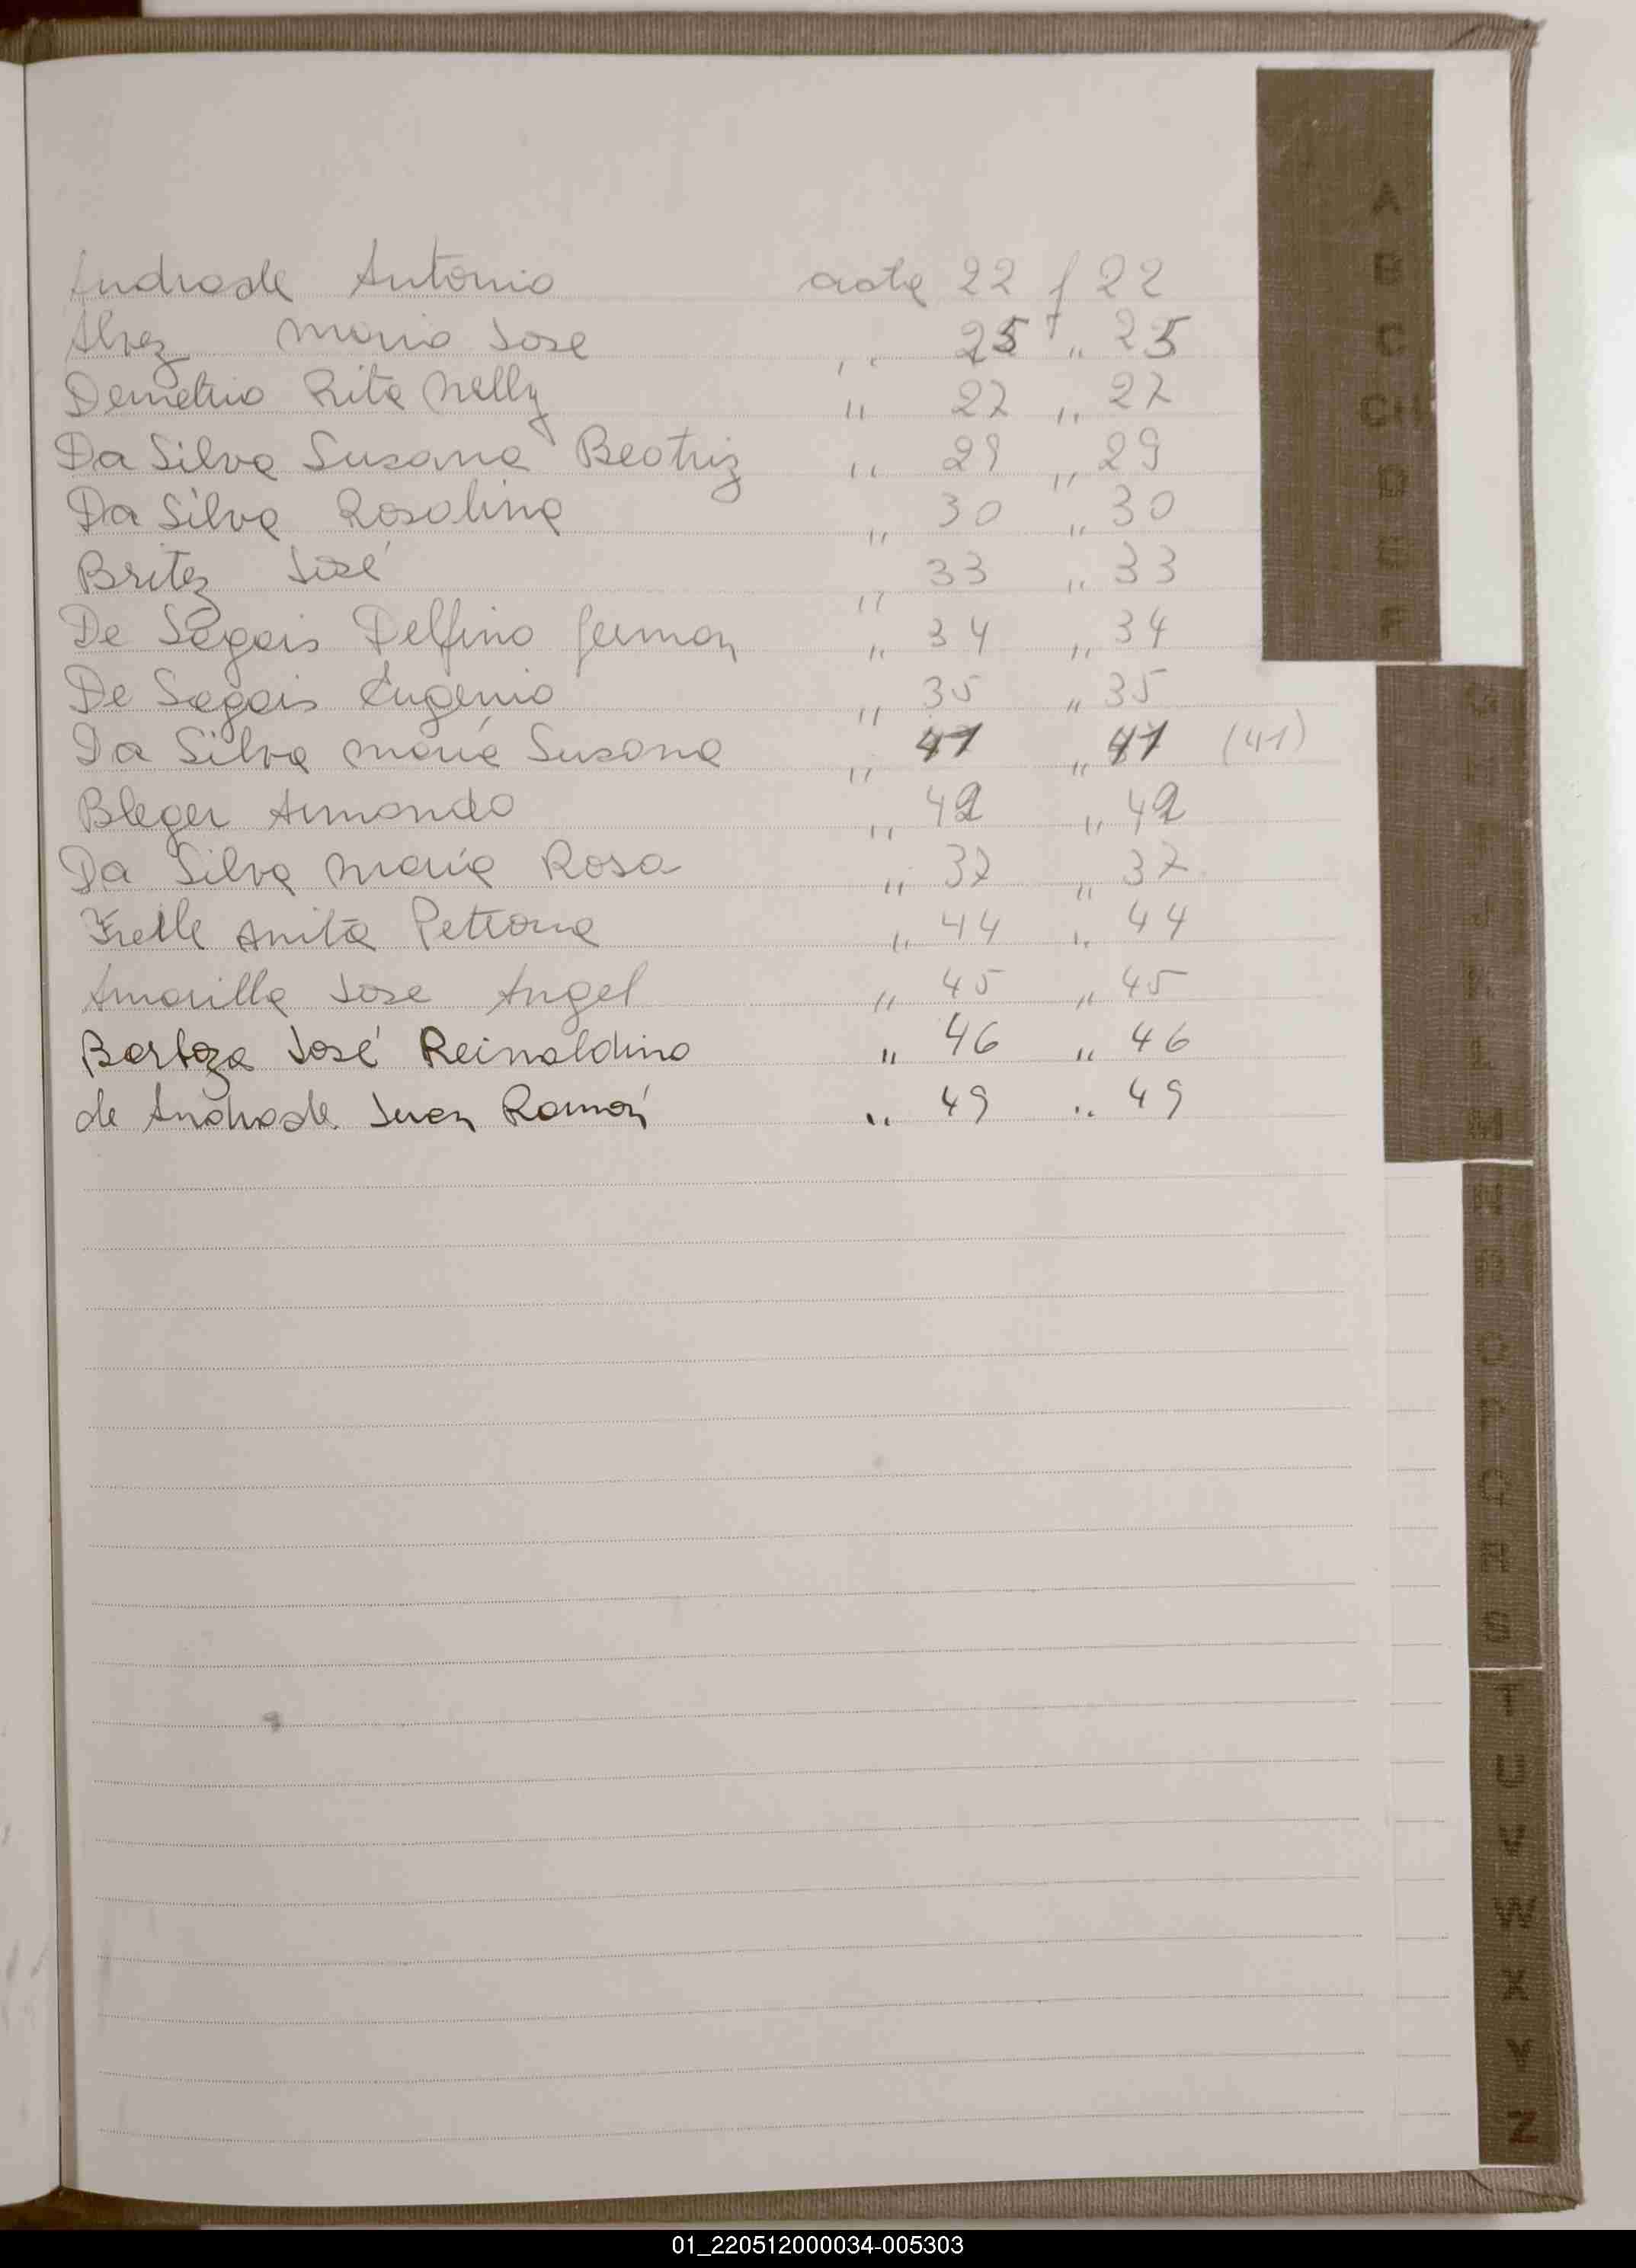 Andrade Antonio acta 22 f 22
Alvez Mario Jose " 25 " 25
Demetrio Rita Nelly " 27 " 27
Da Silva Susana Beatriz " 29 " 29
Da Silva Rosalina " 30 " 30
Britez José " 33 " 33
De Sagais Delfino German " 34 " 34
De Sagais Eugenio " 35 " 35
Da Silva Maria Susana " 41 " 41 (41)
Bleger Armando " 42 " 42
Da Silva Maria Rosa " 37 " 37
Anita Petrona " 44 " 44
Amarilla Jose Angel " 45 " 45
Barboza José Reinaldino " 46 " 46
de Andrade Juan Ramón " 49 " 49
A
B
C
CH
D
E
F
G
H
I
J
K
L
M
N
Ñ
O
P
Q
R
S
T
U
V
W
X
Y
Z
01_220512000034-005303